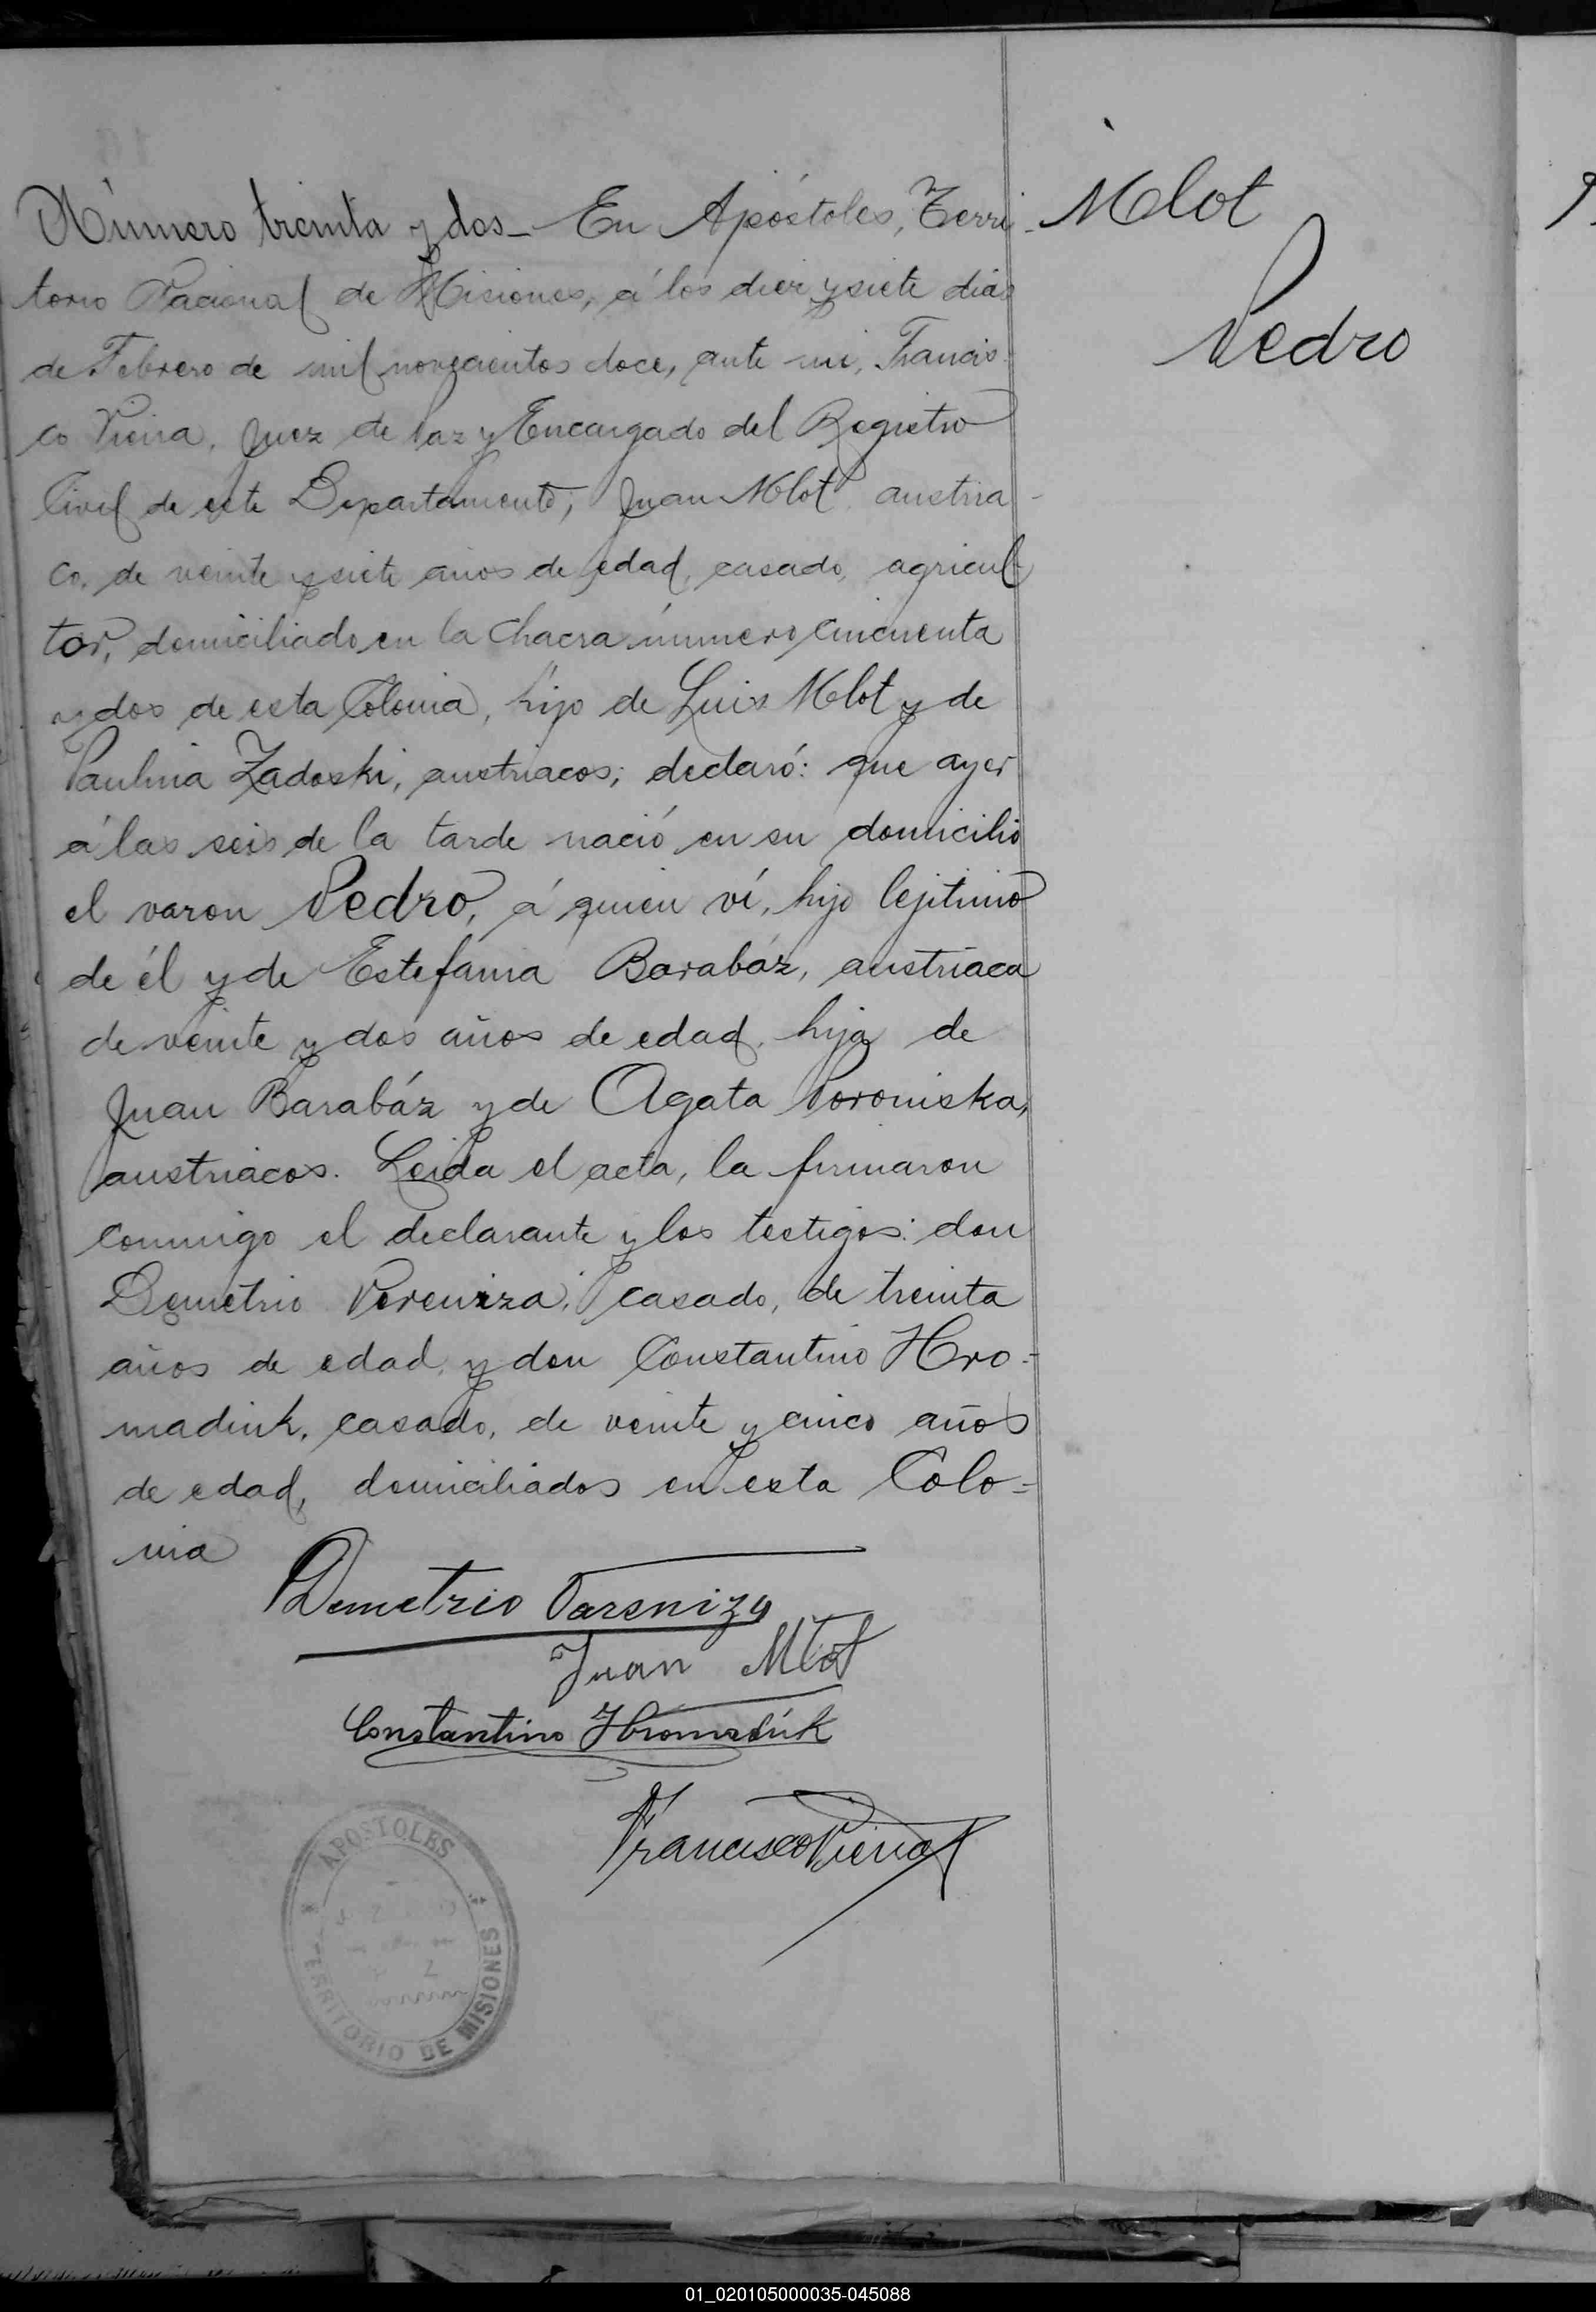 Número treinta y dos - En Apóstoles, Terri-
torio Nacional de Misiones, á los diez y siete dias
de Febrero de mil novecientos doce, ante mi, Francis-
co Vieira, Juez de Paz y Encargado del Registro
Civil de este Departamento, Juan Mlot, austria-
co, de veinte y siete años de edad, casado, agricul-
tor, domiciliado en la Chacra número cincuenta
y dos de esta Colonia, hijo de Luis Mlot y de
Paulina Zadoski, austriacos; declaró: que ayer
á las seis de la tarde nació en su domicilio
el varon Pedro, á quien ví, hijo lejitimo
de él y de Estefánia Barabáz, austriaca
de veinte y dos años de edad, hija de
Juan Barabáz y de Agata Poroniska,
austriacos. Leida el acta, la firmaron
conmigo el declarante y los testigos: don
Demetrio Pereniza, casado, de treinta
años de edad, y don Constantino Hro-
madiuk, casado, de veinte y cinco años
de edad, domiciliados en esta Colo-
nia
Mlot
Pedro
Demetrio
Juan Mlot
Constantino Hromadiuk
Francisco Vieira
APOSTOLES
TERRITORIO DE MISIONES
01_020105000035-045088